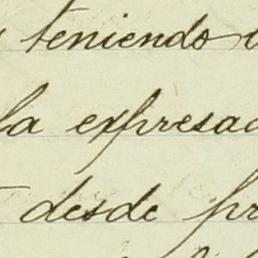 teniendo
la expresa
desde pr